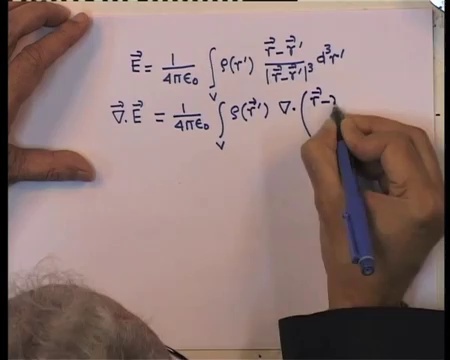 \vec{E} = \frac{1}{4\pi\epsilon_0} \int_V \rho(r') \frac{\vec{r}-\vec{r}'}{|\vec{r}-\vec{r}'|^3} d^3r'
\vec{\nabla}\cdot\vec{E} = \frac{1}{4\pi\epsilon_0} \int_V \rho(\vec{r}') \nabla\cdot\left(\vec{r}-